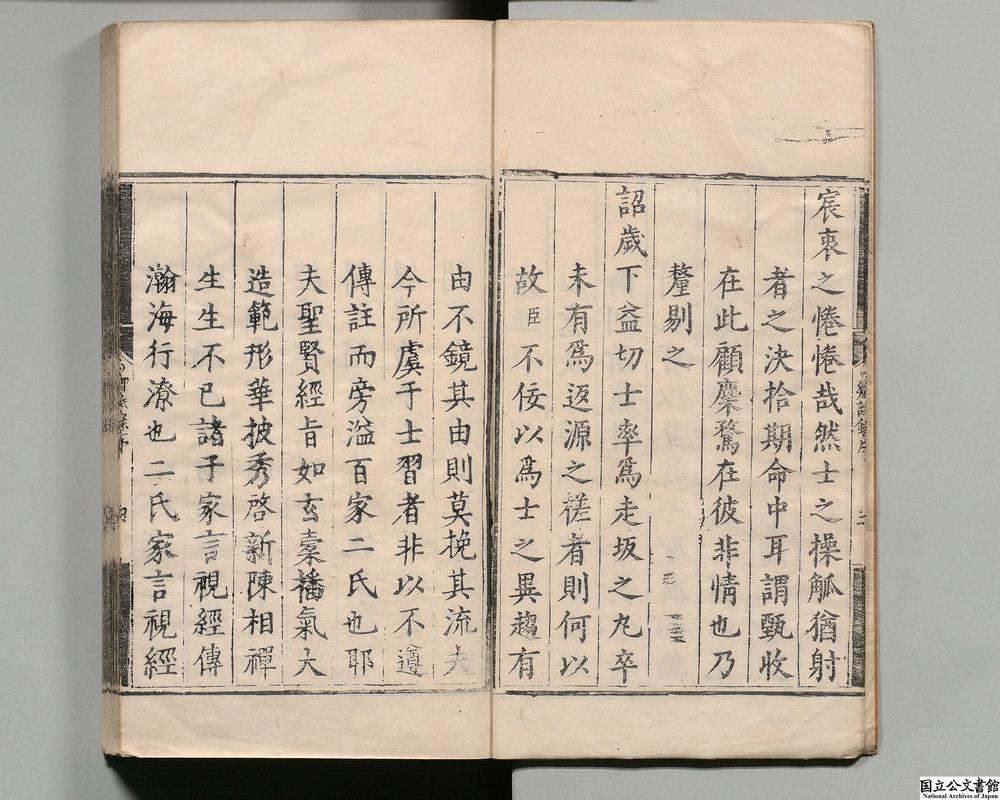 宸衷之惓惓哉然士之操觚猶射
者之決拾期命中耳謂甄收
在此顧麇騖在彼非情也乃
釐剔之
詔歲下益切士率爲走坂之丸卒
未有爲返源之槎者則何以
故臣不佞以爲士之異趨有
由不鏡其由則莫挽其流夫
今所虞于士習者非以不遵
傳註而旁溢百家二氏也耶
夫聖賢經旨如玄橐播氣大
造範形華披秀啓新陳相禪
生生不已諸子家言視經傳
瀚海行潦也二氏家言視經
四
国立公文書館
National Archives of Japan